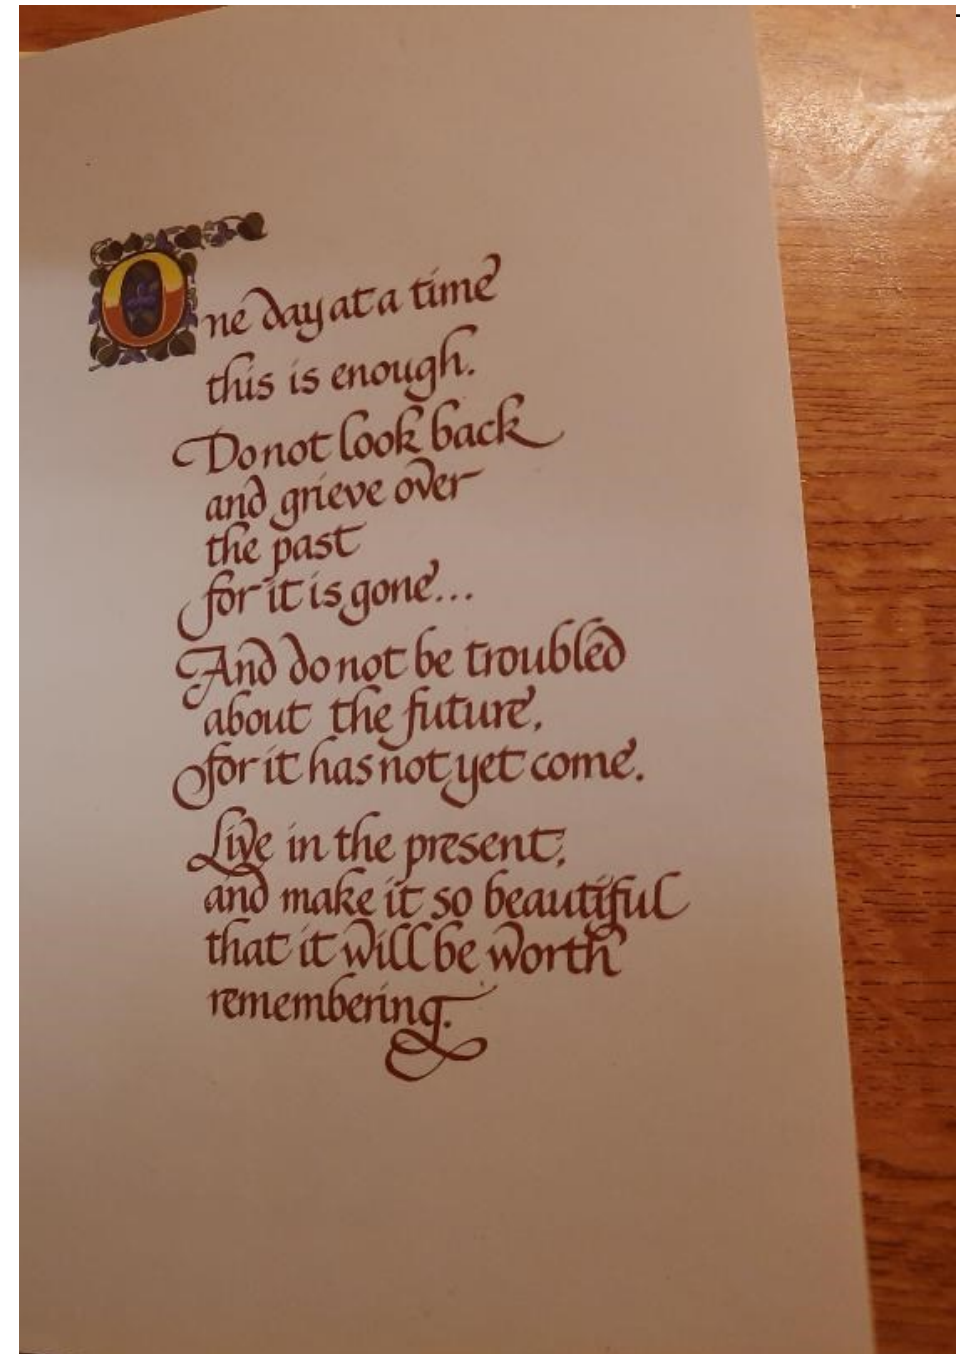 One day at a time
this is enough.
Do not look back
and grieve over
the past
for it is gone...
And do not be troubled
about the future,
for it has not yet come.
Live in the present,
and make it so beautiful
that it will be worth
remembering.